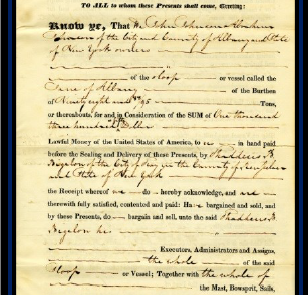 TO ALL to whom these Presents shall come, Greeting:
Know ye, That We John Johnson Abraham
Johnson of the City and County of Albany and State
of New York owners
of the sloop or vessel called the
Jane of Albany of the Burthen
of Ninety eight and 95 Tons,
or thereabouts, for and in Consideration of the SUM of One thousand
three hundred Dollars
Lawful Money of the United States of America, to us in hand paid
before the Sealing and Delivery of these Presents, by Thaddeus B
Bigelow of the City of Troy in the County of Rensselaer
and State of New York
the Receipt whereof we do hereby acknowledge, and are
therewith fully satisfied, contented and paid: Have bargained and sold, and
by these Presents, do bargain and sell, unto the said Thaddeus B
Bigelow his
Executors, Administrators and Assigns,
the whole of the said
Sloop or Vessel; Together with the whole of
the Mast, Bowsprit, Sails,